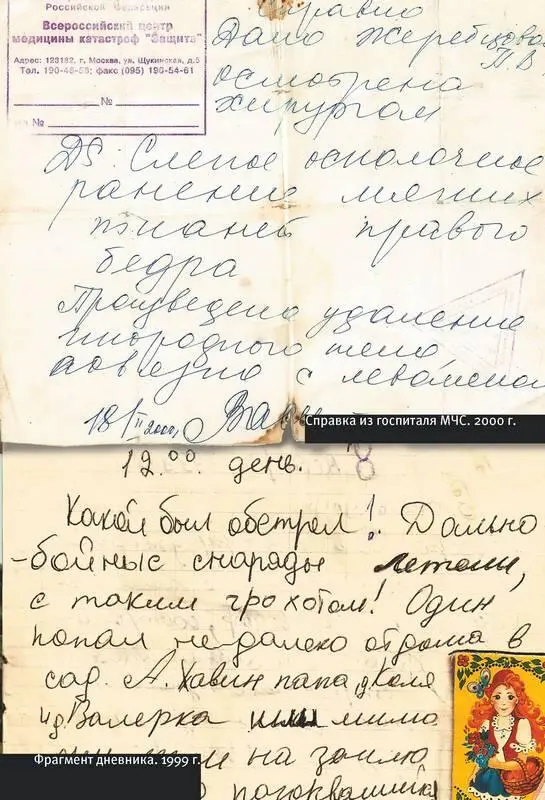 Российской Федерации
Всероссийский центр
медицины катастроф "Защита"
Адрес: 123182, г. Москва, ул. Щукинская, д.5
Тел. 190-46-53; факс (095) 190-54-61
№
№
Справка
Дана Жеребцовой
П.В
осмотрена
хирургом
DS: Слепое осколочное
ранение мягких
тканей правого
бедра
Произведено удаление
инородного тела,
с левомекол
18/II 2000г,
Справка из госпиталя МЧС. 2000 г.
12.00. день. 8
Какой был обстрел! Дально
-бойные снаряды летели,
с таким грохотом! Один
попал не далеко от дома в
сад. А. Хавин папа, д Коля
и д Валерка мимо
на землю
Фрагмент дневника. 1999 г.